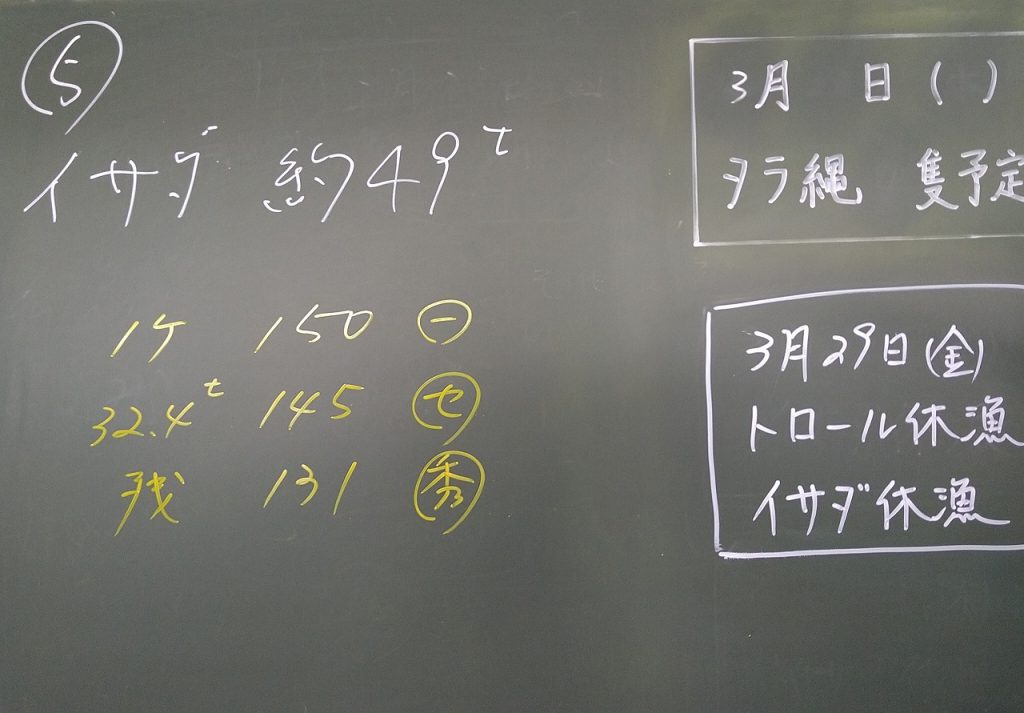 ⑤
イサダ 約49t
1ケ 150 ㊀
32.4t 145 セ
残 131 秀
3月 日( )
タラ縄 隻予定
3月29日(金)
トロール休漁
イサダ休漁